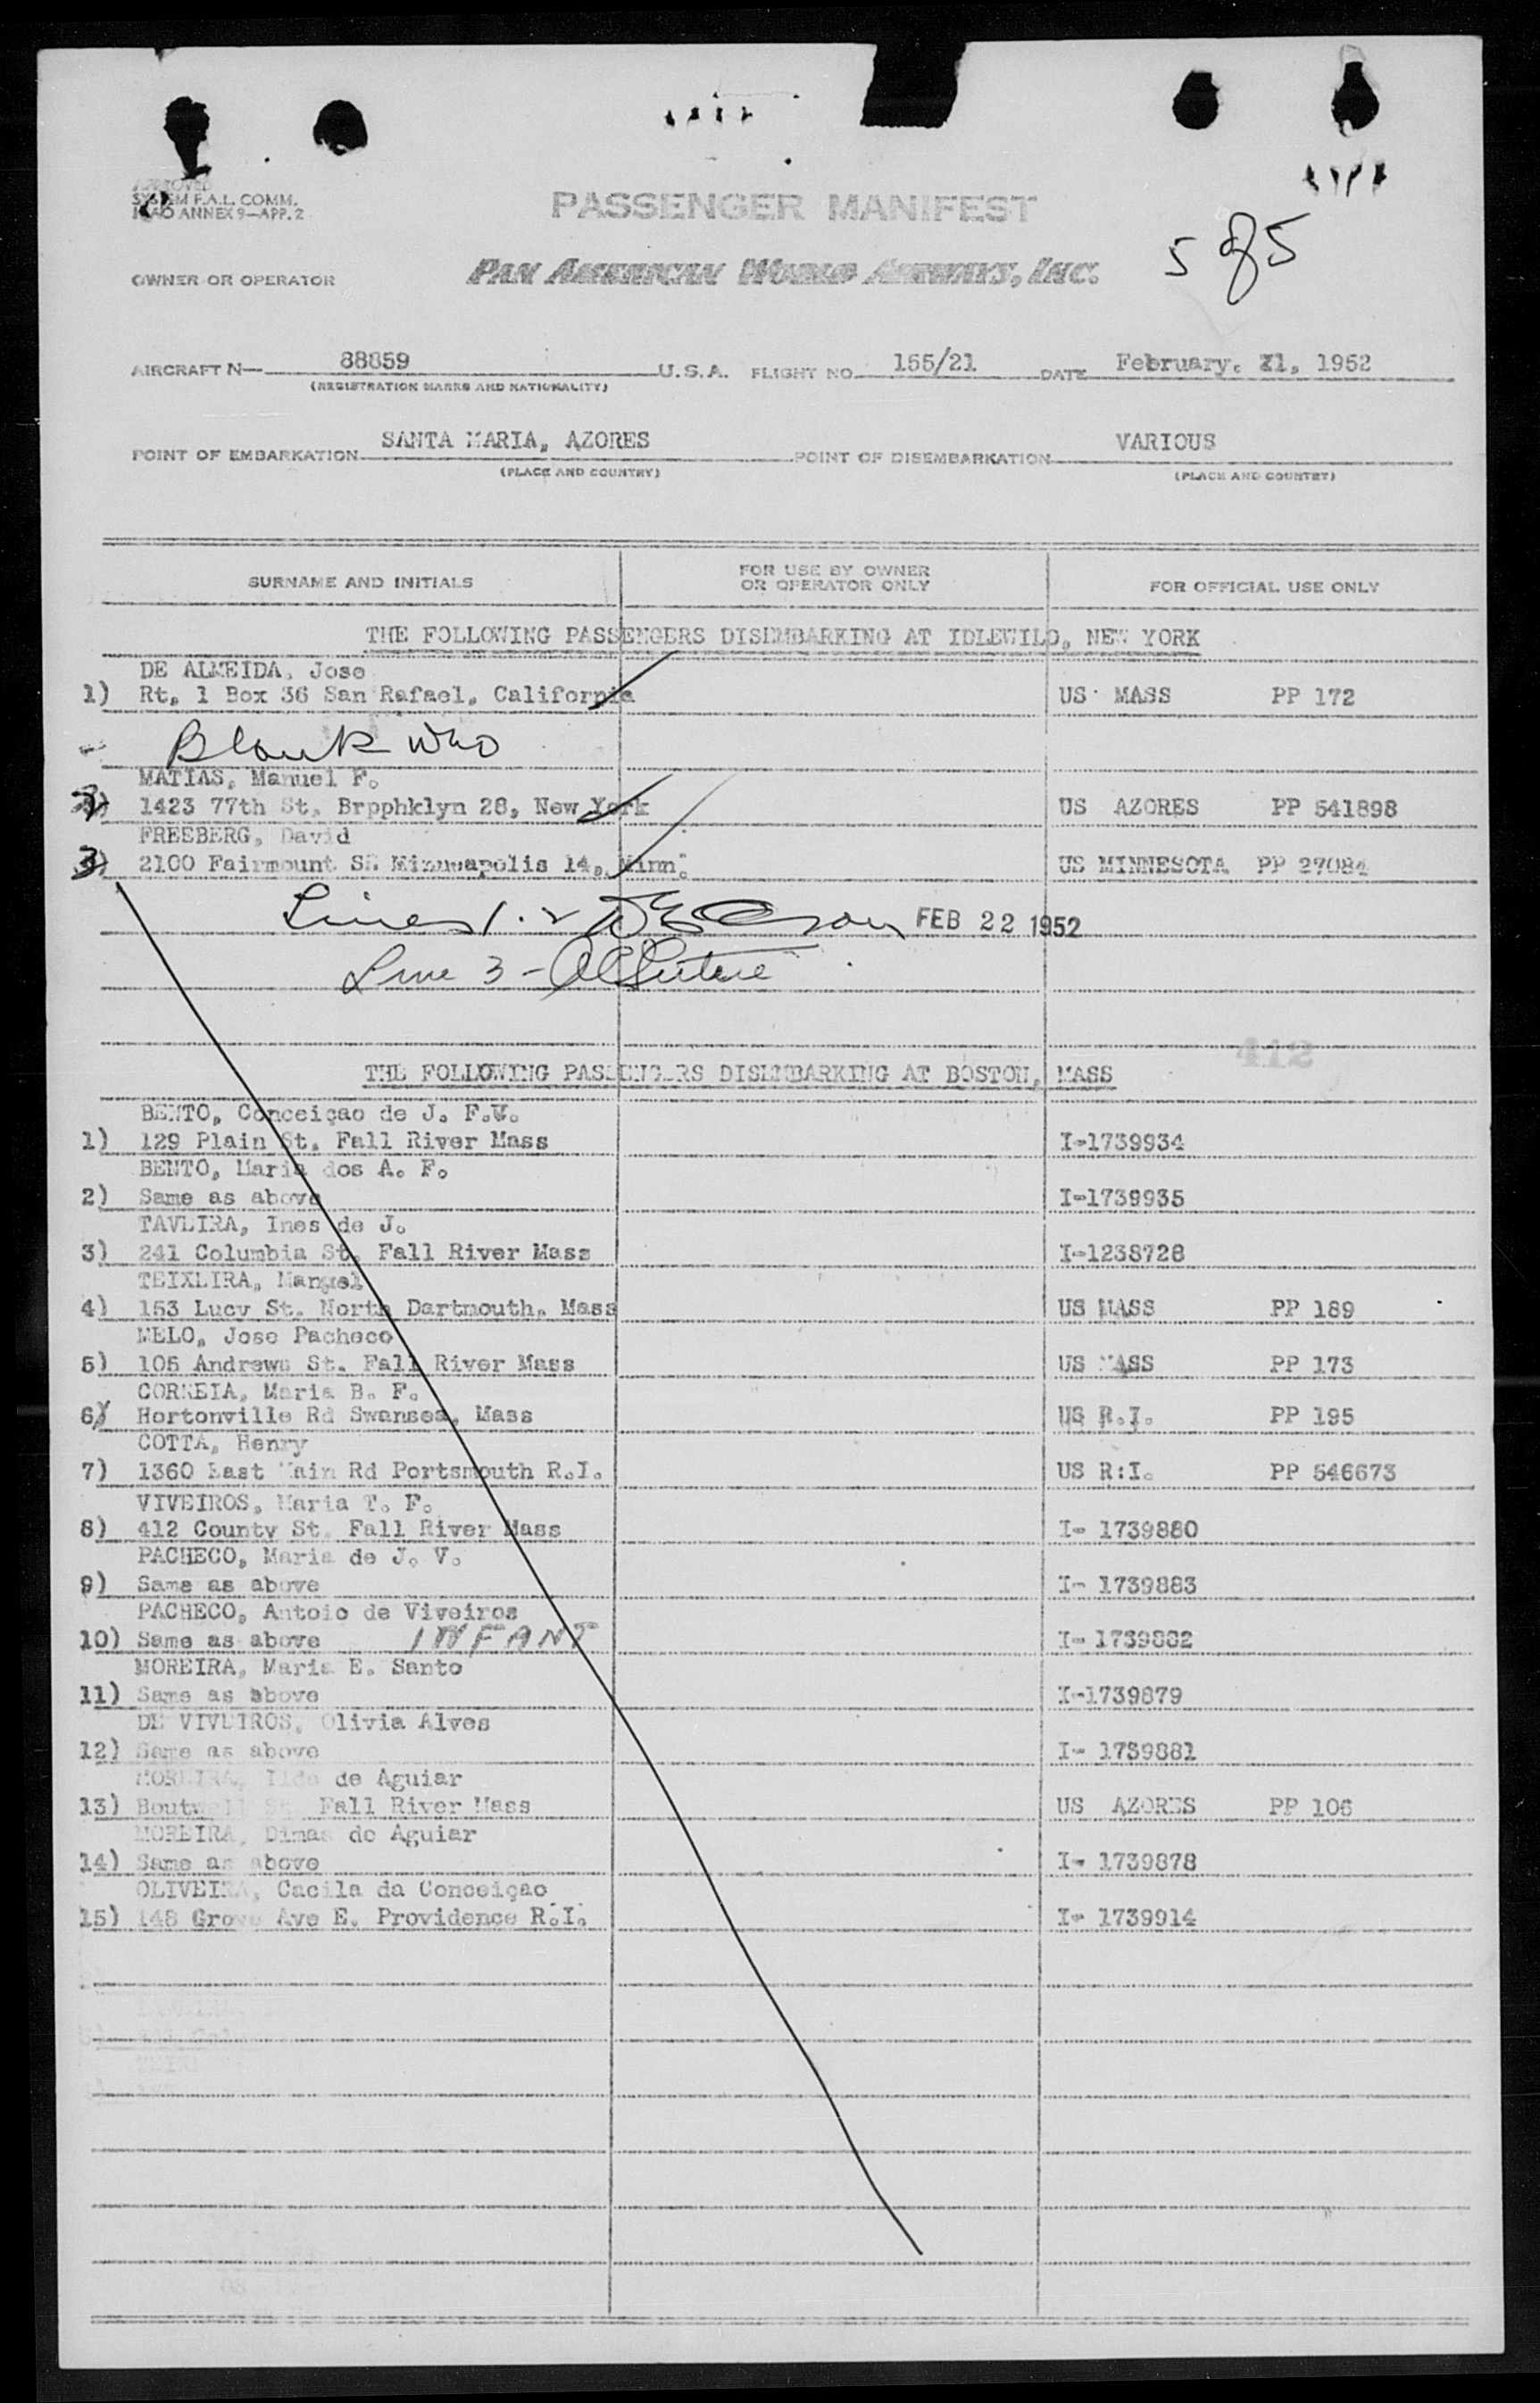 APPROVED
SYSTEM F.A.L. COMM.
ICAO ANNEX 9—APP. 2
PASSENGER MANIFEST
5 of 5
OWNER OR OPERATOR PAN AMERICAN WORLD AIRWAYS, INC.
AIRCRAFT N— 88859 U.S.A. FLIGHT NO. 155/21 DATE February. 21, 1952
(REGISTRATION MARKS AND NATIONALITY)
POINT OF EMBARKATION SANTA MARIA, AZORES POINT OF DISEMBARKATION VARIOUS
(PLACE AND COUNTRY) (PLACE AND COUNTRY)
SURNAME AND INITIALS FOR USE BY OWNER OR OPERATOR ONLY FOR OFFICIAL USE ONLY
THE FOLLOWING PASSENGERS DISEMBARKING AT IDLEWILD, NEW YORK
DE ALMEIDA, Jose
1) Rt. 1 Box 36 San Rafael, California US MASS PP 172
Blank
MATIAS, Manuel F.
2) 1423 77th St. Brpphklyn 28, New York US AZORES PP 541898
FREEBERG, David
3) 2100 Fairmount St Minneapolis 14, Minn. US MINNESOTA PP 27084
Lines 1. 2 FEB 22 1952
Line 3 -
412
THE FOLLOWING PASSENGERS DISEMBARKING AT BOSTON, MASS
BENTO, Conceiçao de J. F.V.
1) 129 Plain St. Fall River Mass I-1739934
BENTO, Maria dos A. F.
2) Same as above I-1739935
TAVEIRA, Ines de J.
3) 241 Columbia St. Fall River Mass I-1238728
TEIXEIRA, Manuel
4) 153 Lucy St. North Dartmouth. Mass US MASS PP 189
MELO, Jose Pacheco
5) 105 Andrews St. Fall River Mass US MASS PP 173
CORREIA, Maria B. F.
6) Hortonville Rd Swansea, Mass US R.I. PP 195
COTTA, Henry
7) 1360 East Main Rd Portsmouth R.I. US R:I. PP 546673
VIVEIROS, Maria T. F.
8) 412 County St. Fall River Mass I- 1739880
PACHECO, Maria de J. V.
9) Same as above I- 1739883
PACHECO, Antoio de Viveiros
10) Same as above INFANT I- 1739882
MOREIRA, Maria E. Santo
11) Same as above I-1739879
DE VIVEIROS, Olivia Alves
12) Same as above I- 1739881
MOREIRA, Ilda de Aguiar
13) Boutwell St. Fall River Mass US AZORES PP 106
MOREIRA, Dimas de Aguiar
14) Same as above I- 1739878
OLIVEIRA, Cacila da Conceiçao
15) 148 Grove Ave E. Providence R.I. I- 1739914